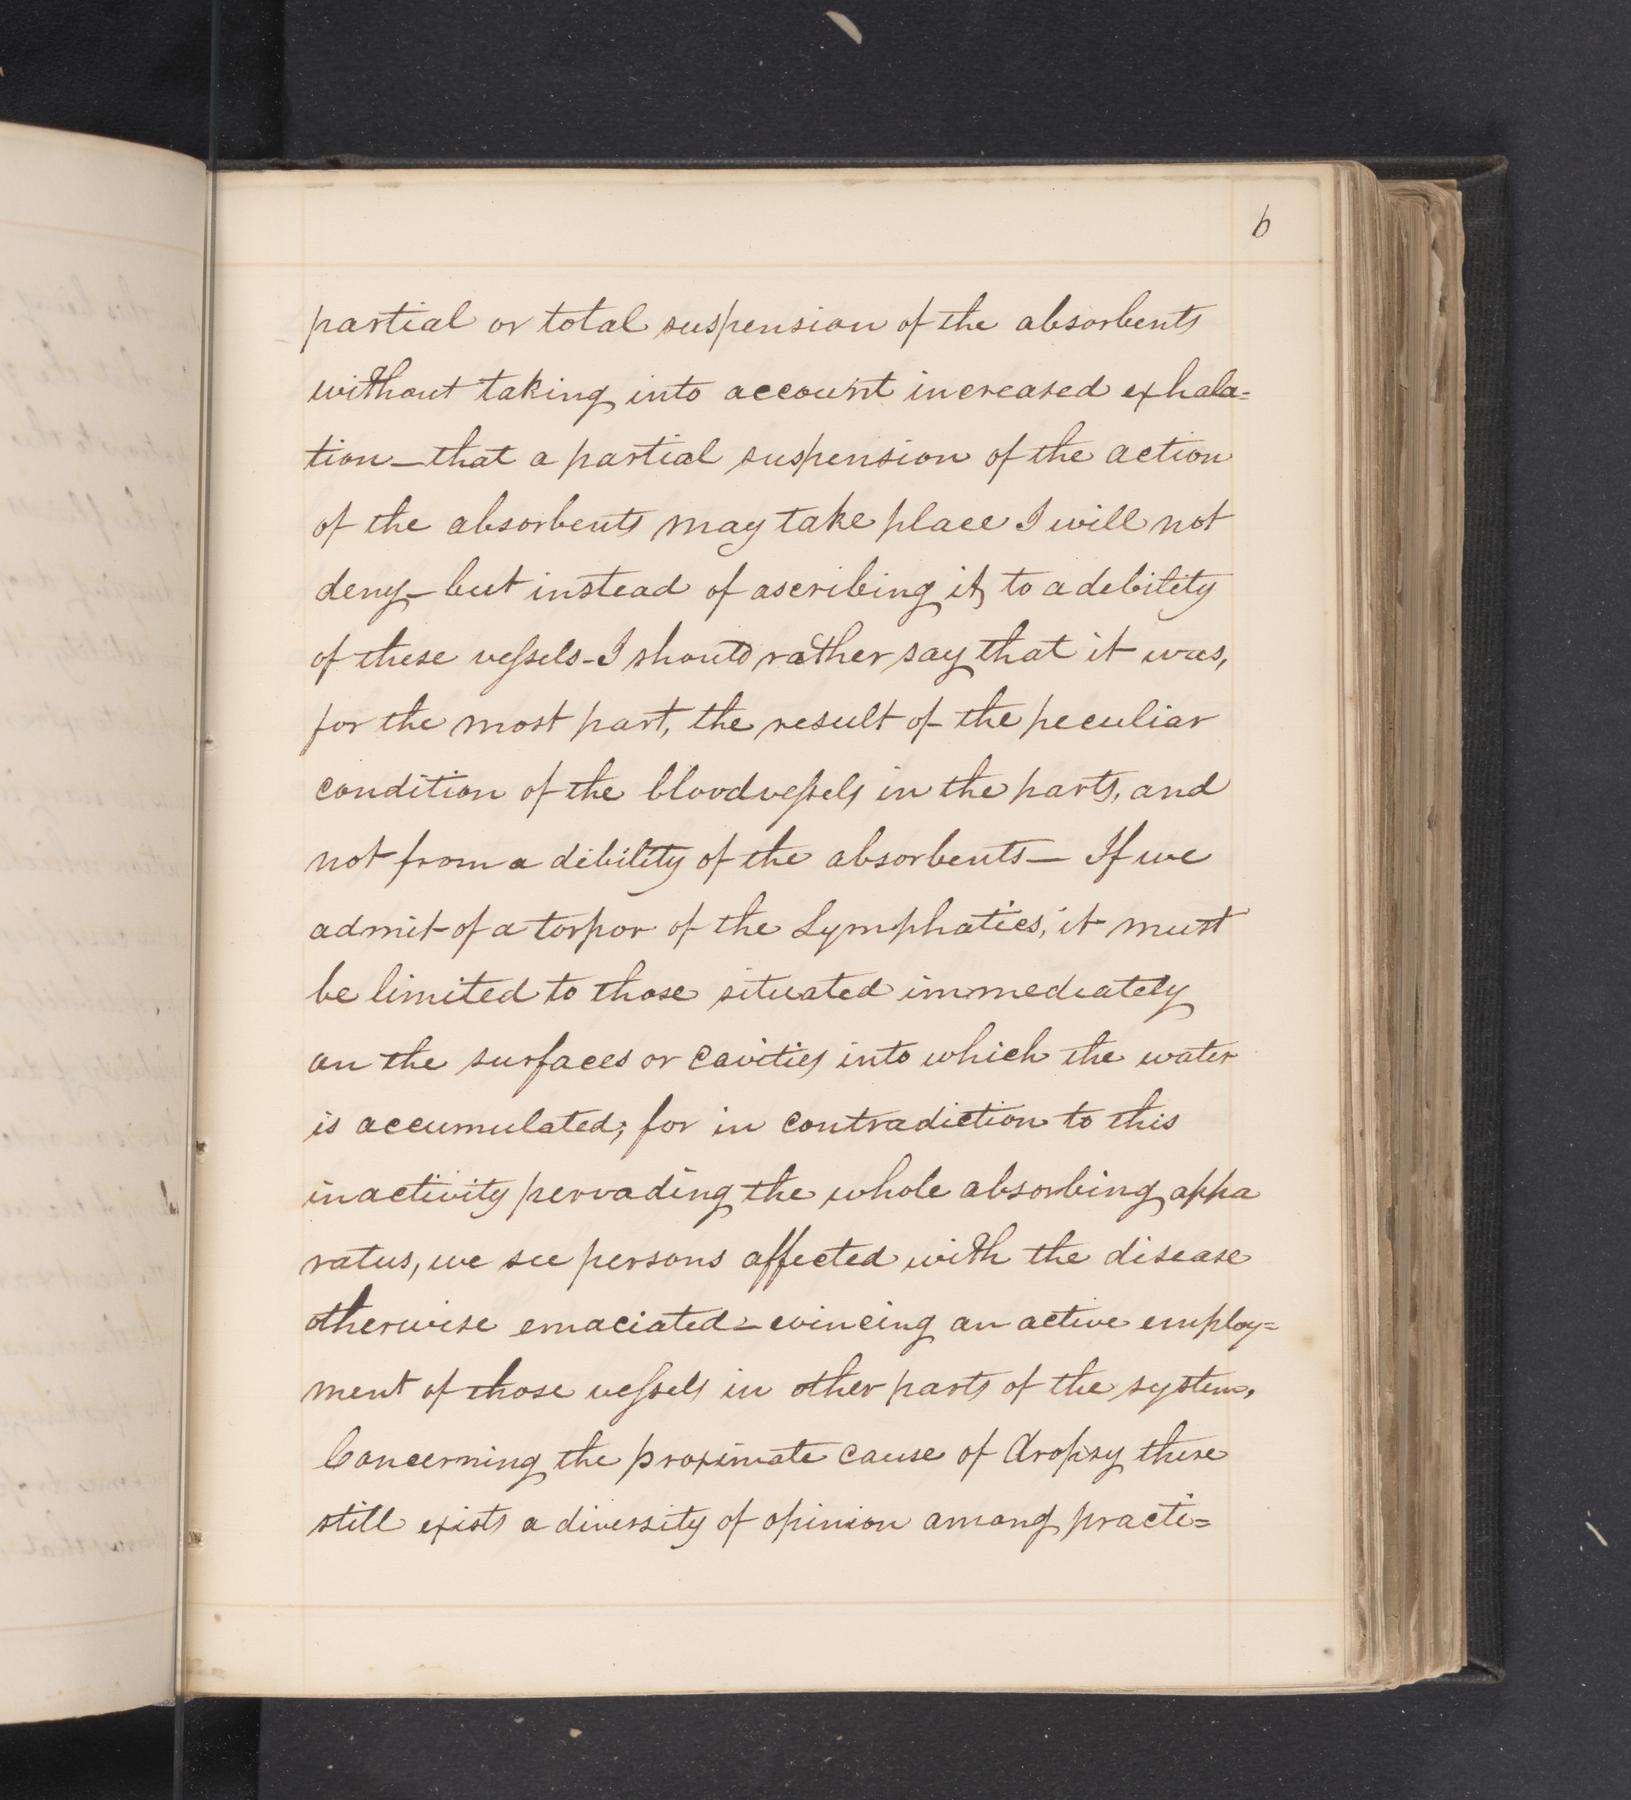 6
partial or total suspension of the absorbents
without taking into account increased exhala=
tion—that a partial suspension of the action
of the absorbents may take place I will not
deny—but instead of ascribing it, to a debility
of these vessels—I should rather say that it was,
for the most part, the result of the peculiar
condition of the bloodvessels in the parts, and
not from a debility of the absorbents— If we
admit of a torpor of the Lymphatics, it must
be limited to those situated immediately
on the surfaces or cavities into which the water
is accumulated; for in contradiction to this
inactivity pervading the whole absorbing appa
ratus, we see persons affected with the disease
otherwise emaciated—evincing an active employ=
ment of those vessels in other parts of the system,
Concerning the proximate cause of dropsy there
still exists a diversity of opinion among practi=